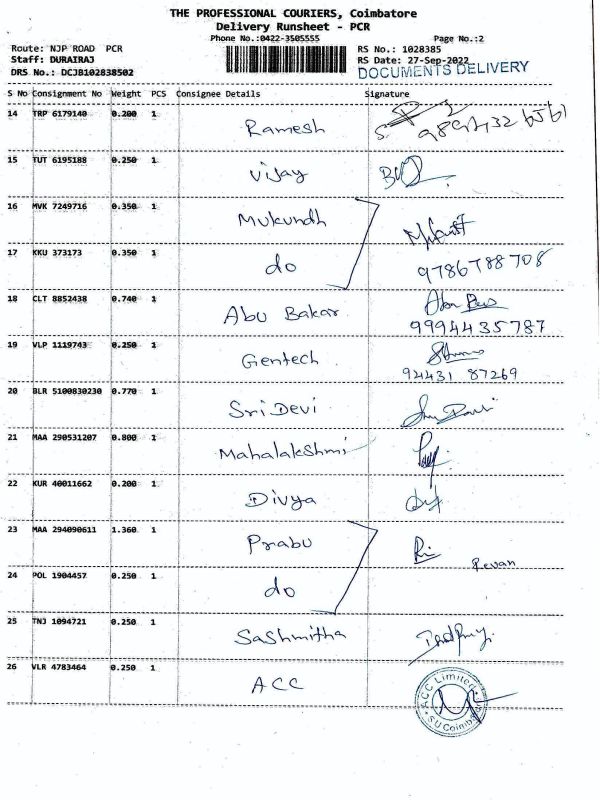 THE PROFESSIONAL COURIERS, Coimbatore
Delivery Runsheet - PCR
Phone No.:0422-3505555
Page No.:2
Route: NJP ROAD PCR
RS No.: 1028385
Staff: DURAIRAJ
RS Date: 27-Sep-2022
DRS No.: DCJB102838502
DOCUMENTS DELIVERY
S No Consignment No Weight PCS Consignee Details Signature
14 TRP 6179140 0.200 1 Ramesh
15 TUT 6195188 0.250 1 Vijay
16 MVK 7249716 0.350 1 Mukundh
17 KKU 373173 0.350 1 do 9786788708
18 CLT 8852438 0.740 1 Abu Bakar
9994435787
19 VLP 1119743 0.250 1 Gentech
94431 87269
20 BLR 5100830230 0.770 1 Sri Devi
21 MAA 290531207 0.800 1 Mahalakshmi
22 KUR 40011662 0.200 1 Divya
23 MAA 294090611 1.360 1 Prabu
Revan
24 POL 1904457 0.250 1 do
25 TNJ 1094721 0.250 1 Sashmitha
26 VLR 4783464 0.250 1 ACC
ACC Limited